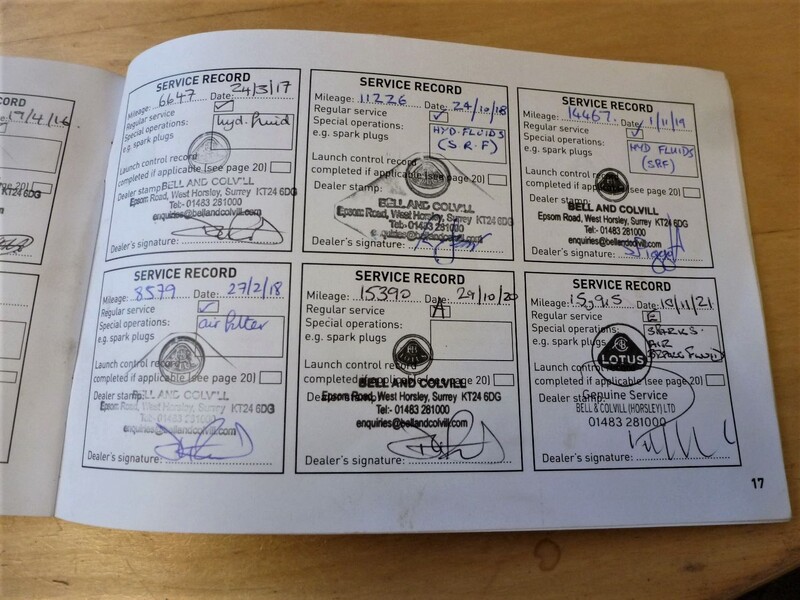 CORD
17/4/16
KT24 6DG
SERVICE RECORD
Mileage: 6647 Date: 24/3/17
Regular service
Special operations: hyd. fluid
e.g. spark plugs
Launch control record
completed if applicable (see page 20)
Dealer stamp:
BELL AND COLVILL
Epsom Road, West Horsley, Surrey KT24 6DG
Tel:- 01483 281000
enquiries@bellandcolvill.com
Dealer's signature:
SERVICE RECORD
Mileage: 11226 Date: 24/10/18
Regular service
Special operations: HYD. FLUIDS
e.g. spark plugs (S.R.F)
Launch control record
completed if applicable (see page 20)
Dealer stamp:
BELL AND COLVILL
Epsom Road, West Horsley, Surrey KT24 6DG
Tel:- 01483 281000
enquiries@bellandcolvill.com
Dealer's signature:
SERVICE RECORD
Mileage: 14467 Date: 1/11/19
Regular service
Special operations: HYD FLUIDS
e.g. spark plugs (SRF)
Launch control record
completed if applicable (see page 20)
Dealer stamp:
BELL AND COLVILL
Epsom Road, West Horsley, Surrey KT24 6DG
Tel:- 01483 281000
enquiries@bellandcolvill.com
Dealer's signature:
SERVICE RECORD
Mileage: 8579 Date: 27/2/18
Regular service
Special operations: air filter
e.g. spark plugs
Launch control record
completed if applicable (see page 20)
Dealer stamp:
BELL AND COLVILL
Epsom Road, West Horsley, Surrey KT24 6DG
Tel:- 01483 281000
enquiries@bellandcolvill.com
Dealer's signature:
SERVICE RECORD
Mileage: 15390 Date: 29/10/20
Regular service A
Special operations:
e.g. spark plugs
Launch control record
completed if applicable (see page 20)
BELL AND COLVILL
Dealer stamp:
Epsom Road, West Horsley, Surrey KT24 6DG
Tel:- 01483 281000
enquiries@bellandcolvill.com
Dealer's signature:
SERVICE RECORD
Mileage: 15,915 Date: 10/11/21
Regular service E
Special operations: SPARKS.
e.g. spark plugs AIR
BRAKE FLUID
LOTUS
Launch control record
completed if applicable (see page 20)
Dealer stamp:
Genuine Service
BELL & COLVILL (HORSLEY) LTD
01483 281000
Dealer's signature:
17